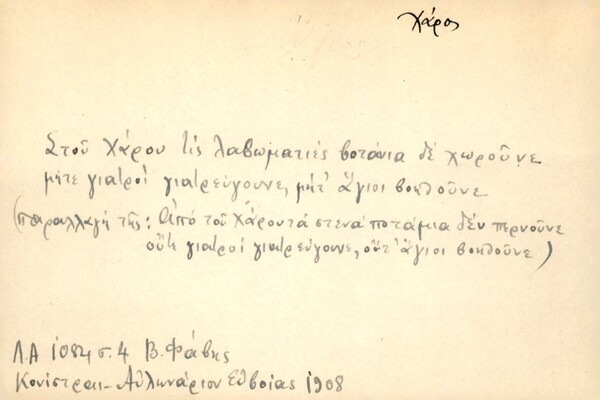 Χάρος
Στοῦ Χάρου τὶς λαβωματιές βοτάνια δέ χωροῦνε
μήτε γιατροί γιατρεύγουνε, μήτ' ἅγιοι βοηθοῦνε
(παραλλαγή τῆς: Ἀπό τοῦ Χάροντα στενά ποτάμια δέν περνοῦνε
οὔτε γιατροί γιατρεύγουνε, οὔτ' ἅγιοι βοηθοῦνε)
Λ.Α 1084 σ. 4 Β. Φάβης
Κονίστραι - Αὐλωνάριον Εὐβοίας 1908